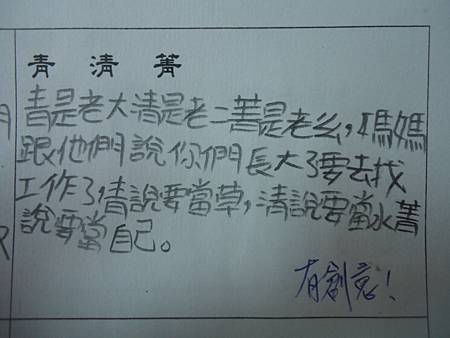 青 清 菁
青是老大清是老二菁是老么，媽媽
跟他們說你們長大了要去找
工作了，青說要當草，清說要當水菁
說要當自己。
有創意！